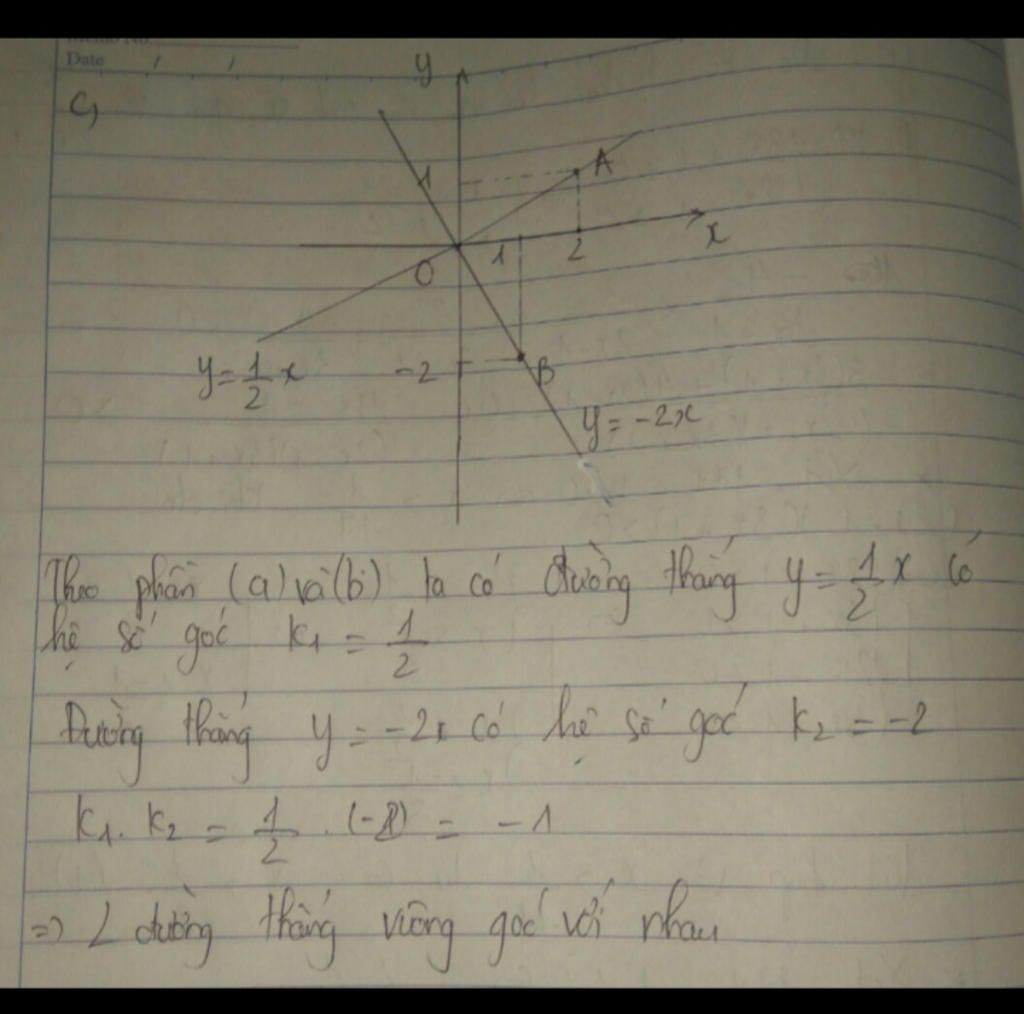 Memo No.
Date / /
c,
y
1
A
O
1
2
x
y = 1/2 x
-2
B
y = -2x
Theo phần (a) và (b) ta có đường thẳng y = 1/2 x có
hệ số góc k₁ = 1/2
Đường thẳng y = -2x có hệ số góc k₂ = -2
k₁. k₂ = 1/2 . (-2) = -1
=> 2 đường thẳng vuông góc với nhau